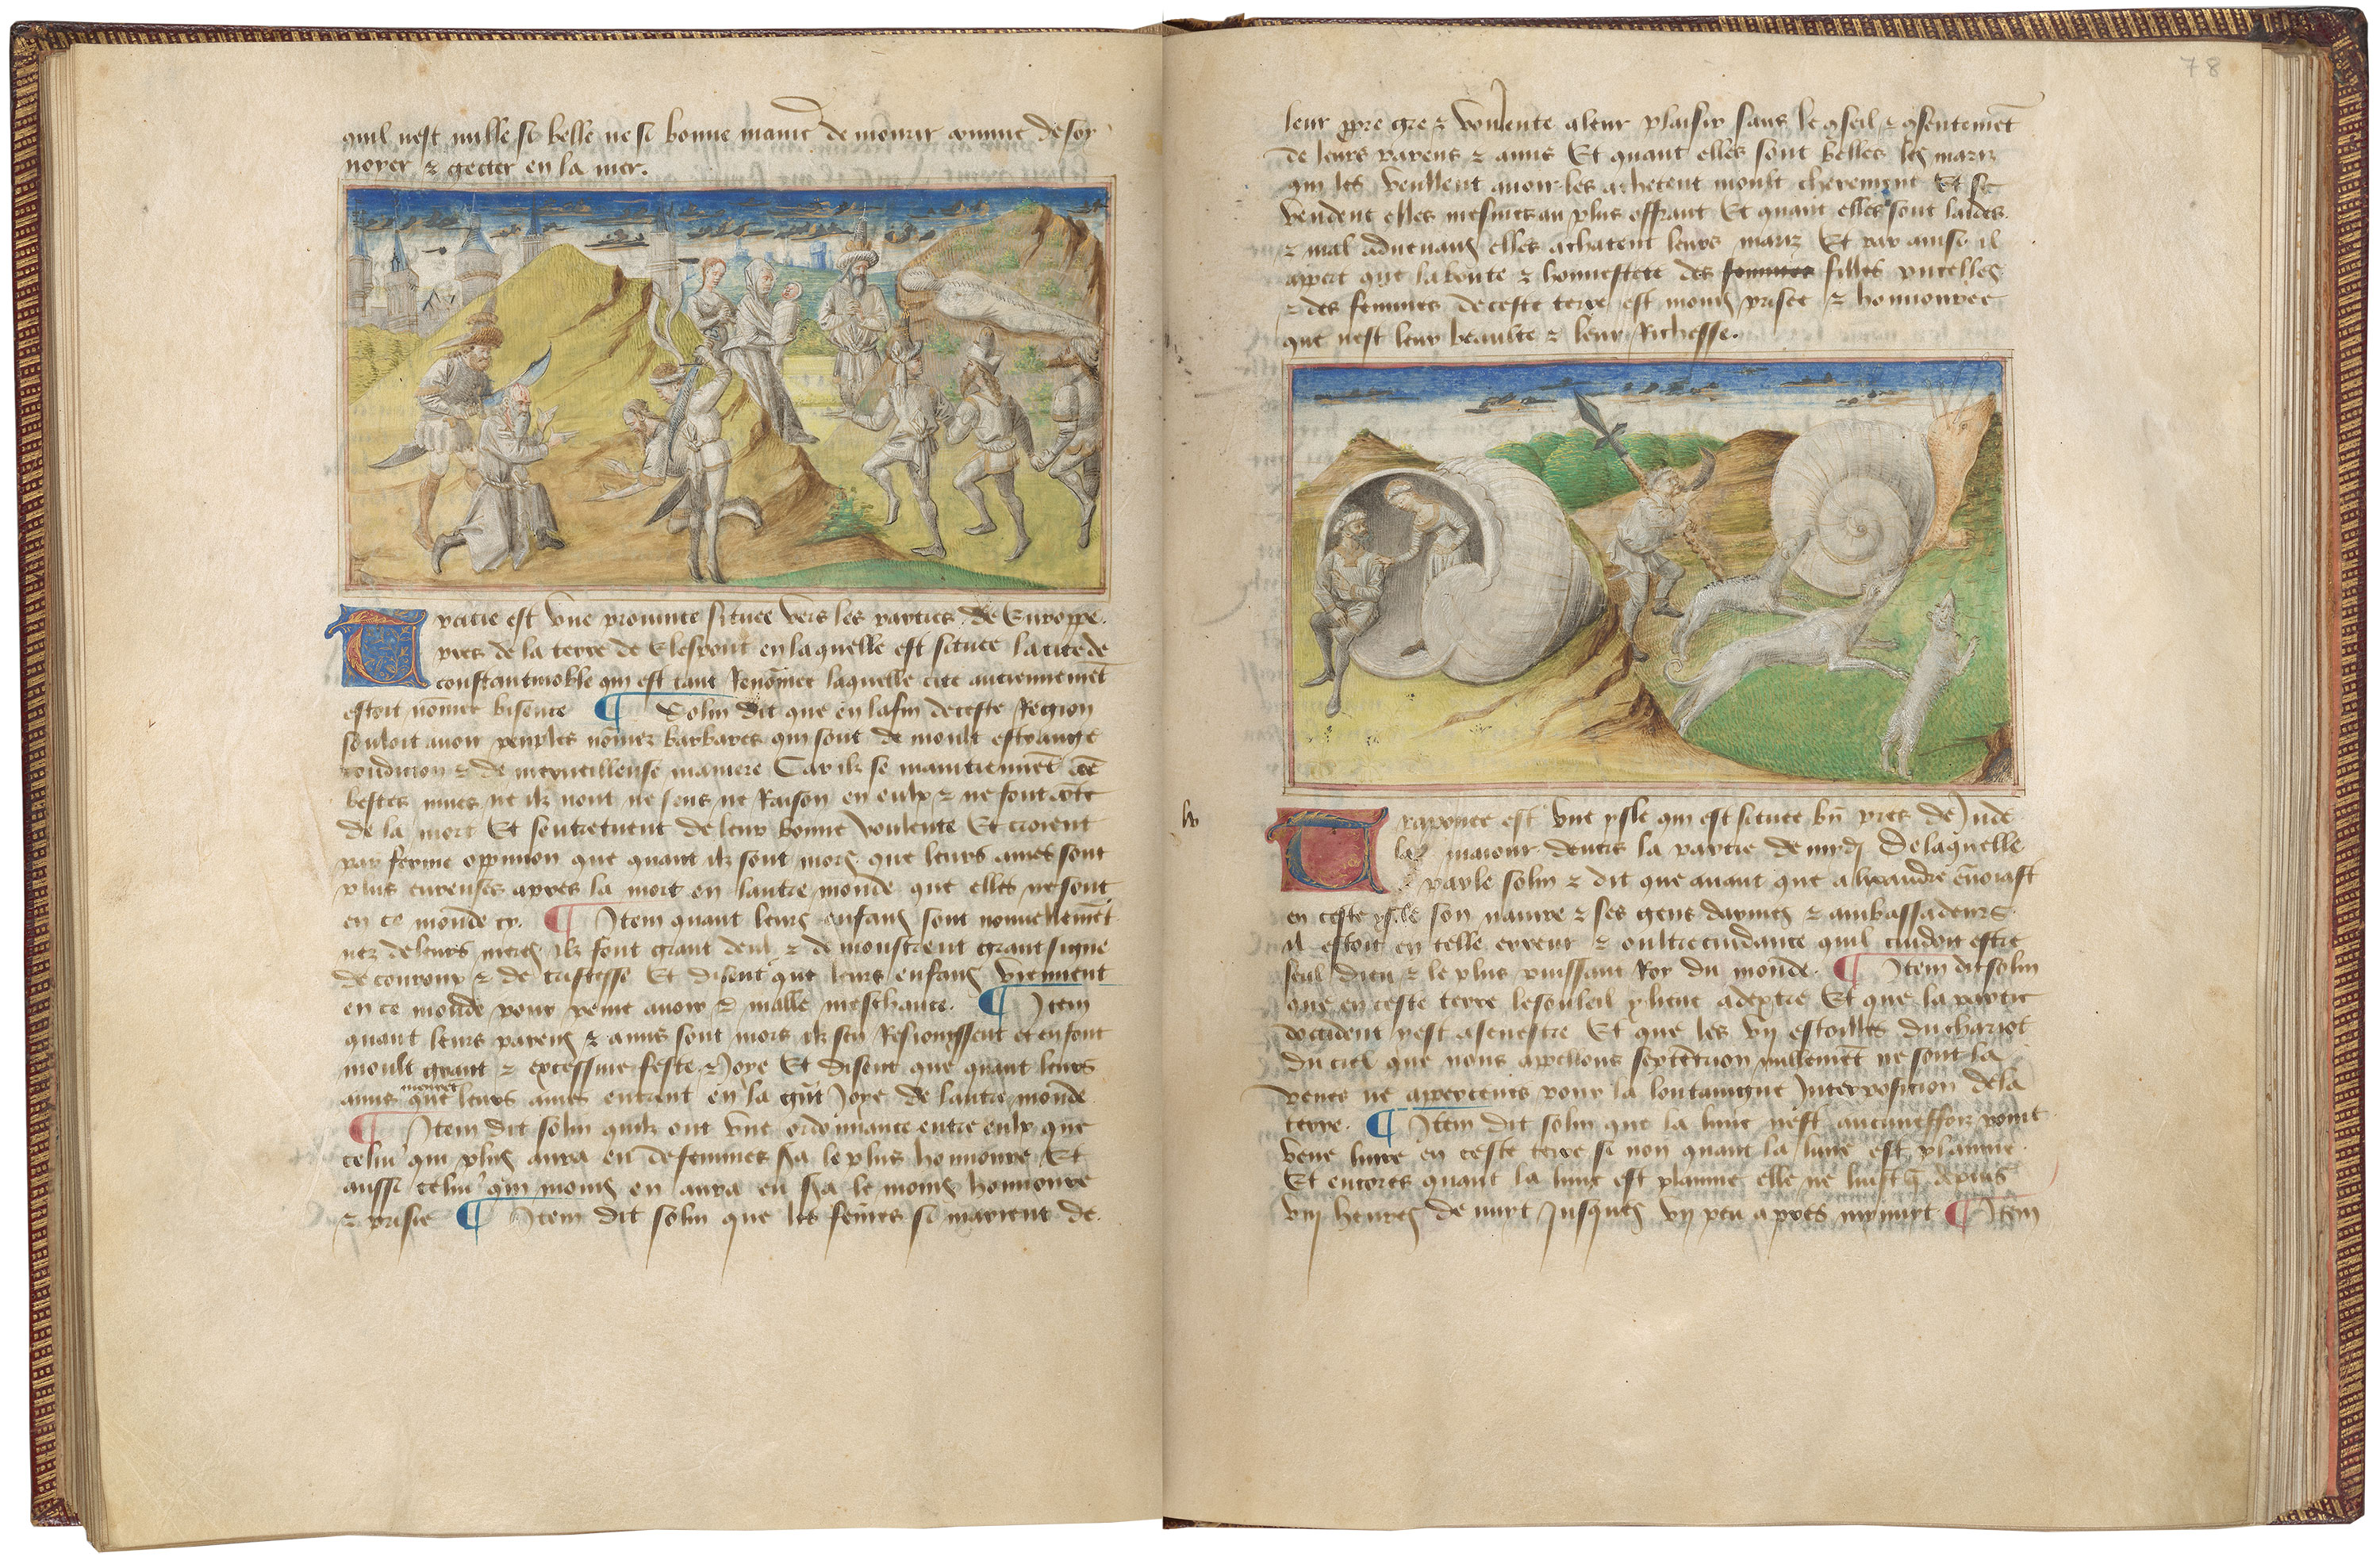 quil nest nulle si belle ne si bonne manie de mourir comme de soy
noyer & getter en la mer.
Tracie est une prouince situee vers les parties de Europpe.
pres de la terre de Elespont en laquelle est situee la cite de
constantinoble qui est tant renõmee laquelle cite anciennemẽt
estoit nõmee bisence ¶ Solin dit que en la fin de ceste Region
souloit auoir peuples nõmez barbares qui sont de moult estrange
condicion & de merueilleuse maniere Car ilz se maintiennẽt cõe
bestes mues ne ilz nont ne sens ne Raison en eulx & ne font cõte
de la mort Et sentretuent de leur bonne voulente Et croient
par ferme oppinion que quant ilz sont mors que leurs ames sont
plus eureuses apres la mort en lautre monde que elles ne sont
en ce monde cy. ¶ Item quant leurs enfans sont nouuellemẽt
nez de leurs meres ilz font grant deul & demonstrent grant signe
de couroux & de tristesse Et disent que leurs enfans viennent
en ce monde pour peine auoir & malle meschance. ¶ Item
quant leurs parens & amis sont mors ilz sen Resiouyssent et en font
moult grant & excessiue feste & Joye Et disent que quant leurs
amis meurẽt que leurs ames entrent en la grãt Joye de lautre monde
¶ Item dit solin quilz ont une ordonnance entre eulx que
celui qui plus aura eu de femmes sera le plus honnoure Et
aussi celui qui moins en aura eu sera le moins honnoure
& prisie ¶ Item dit solin que les fẽmes se marient de
78
leur ppre gre & voulente a leur plaisir sans le cseil & csentemẽt
de leurs parens & amis Et quant elles sont belles les mariz
qui les veullent auoir les achetent moult cherement Et se
vendent elles mesmes au plus offrant Et quant elles sont laides
& mal aduenans elles achatent leurs mariz Et par ainsi il
appert que la bonte & honnestete des femmes filles pucelles
& des femmes de ceste terre est moins prisee & honnouree
que nest leur beaulte & leur Richesse.
lv
Traponee est une ysle qui est situee bñ pres de Jnde
la maiour deuers la partie de midj De laquelle
parle solin & dit que auant que alixandre enuoiast
en ceste ysle son nauire & ses gens darmes & ambassadeurs
il estoit en telle erreur & oultrecuidance quil cuidoit estre
seul dieu & le plus puissant Roy du monde. ¶ Item dit solin
que en ceste terre le souleil y lieue a dextre Et que la partie
doccident y est a senestre Et que les vij estoilles du chariot
du ciel que nous appellons septẽtrion nullemẽt ne sont la
veues ne apperceues pour la lontaingne Interposicion de la
terre. ¶ Item dit solin que la lune nest aucuneffoiz point
veue luire en ceste terre si non quant la lune est plaine
Et encores quant la lune est plaine elle ne luist q̃ depuis
viij heures de nuyt Jusques vij peu apres mynuit ¶ Item